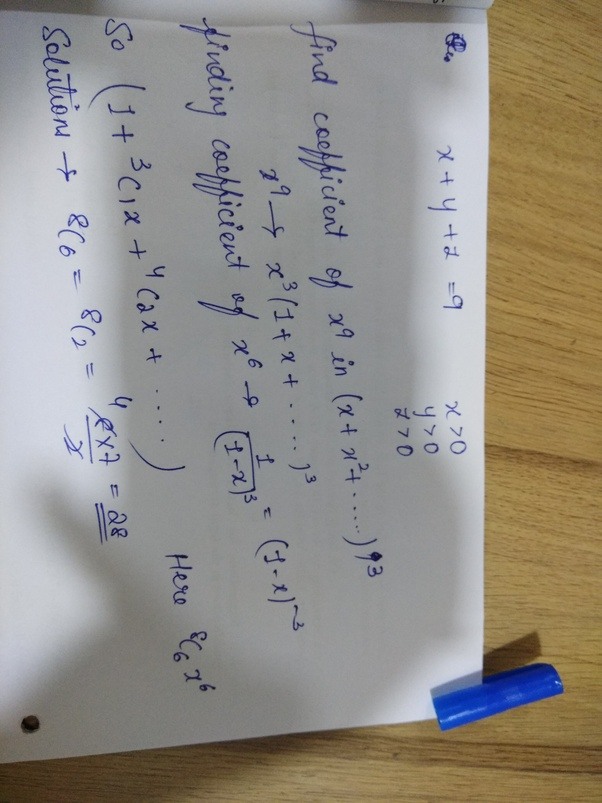 Q. x + y + z = 9 x > 0
y > 0
z > 0
find coefficient of x⁹ in (x + x² + .....)³
x⁹ → x³ (1 + x + .....)³
finding coefficient of x⁶ → 1/(1-x)³ = (1-x)⁻³
So (1 + ³C₁x + ⁴C₂x + .....) Here ⁸C₆ x⁶
Solutions → ⁸C₆ = ⁸C₂ = 8×7/2 = 28